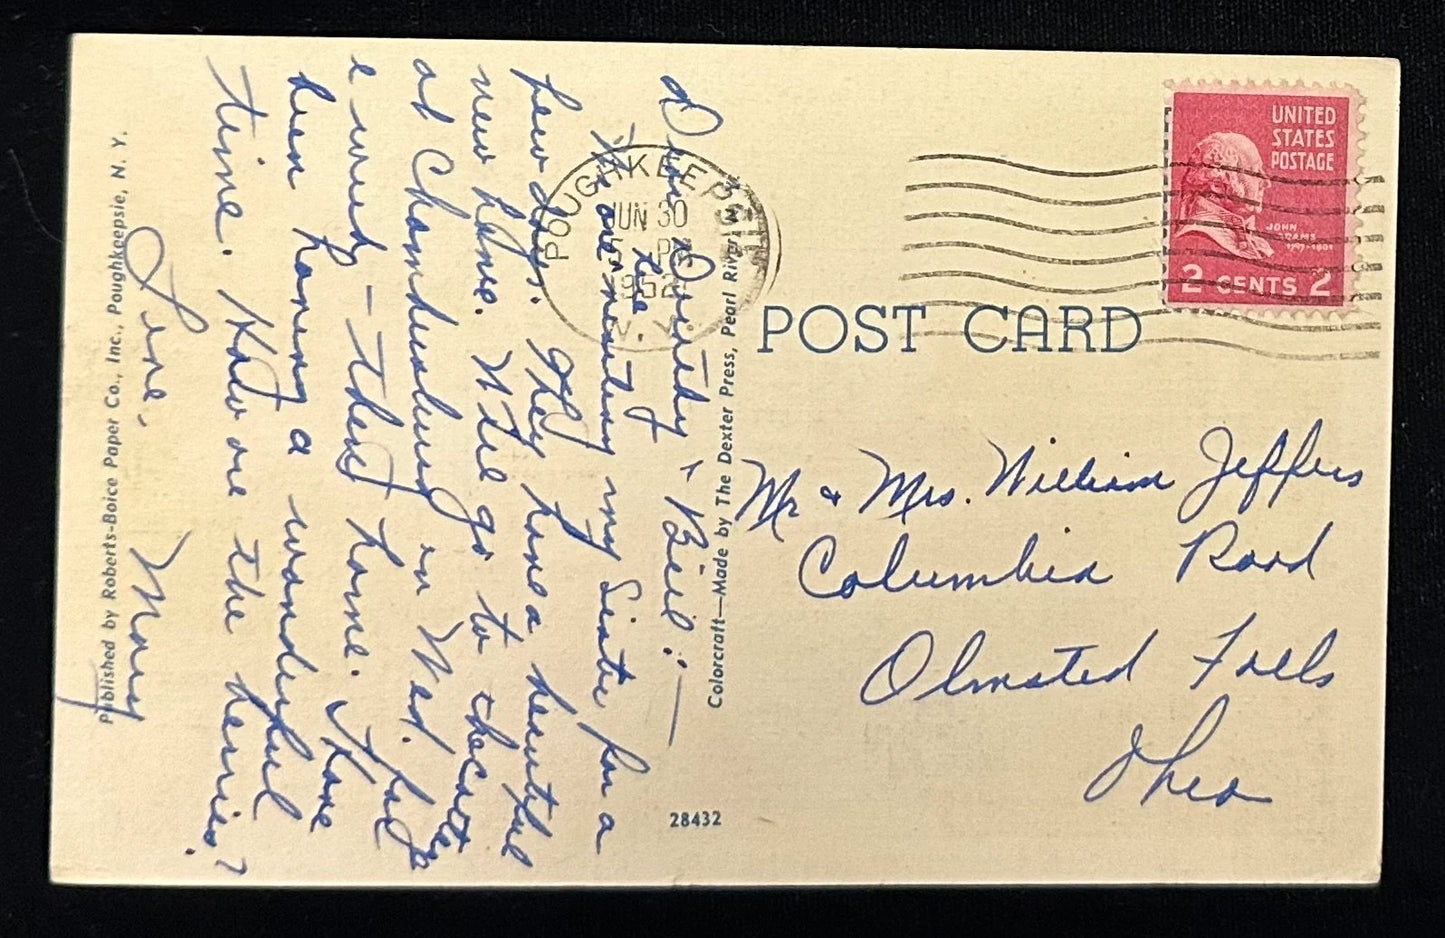 Dear Dorothy & Bill: —
We are visiting my Sister for a
few days. They have a beautiful
new home. Will go to the cottage
at Chambersburg on Wed. Spend
a week — then home. Have
been having a wonderful
time. How are the berries?
Love,
Mary
Published by Roberts-Boice Paper Co., Inc., Poughkeepsie, N. Y.
Colorcraft—Made by The Dexter Press, Pearl River
28432
POST CARD
POUGHKEEPSIE
JUN 30
PM
1952
N. Y.
UNITED
STATES
POSTAGE
JOHN
ADAMS
1797-1801
2 CENTS 2
Mr & Mrs. William Jeffers
Columbia Road
Olmsted Falls
Ohio